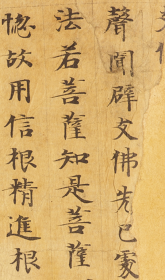 聲聞辟支佛先已
法若菩薩知是菩薩
故用信根精進根